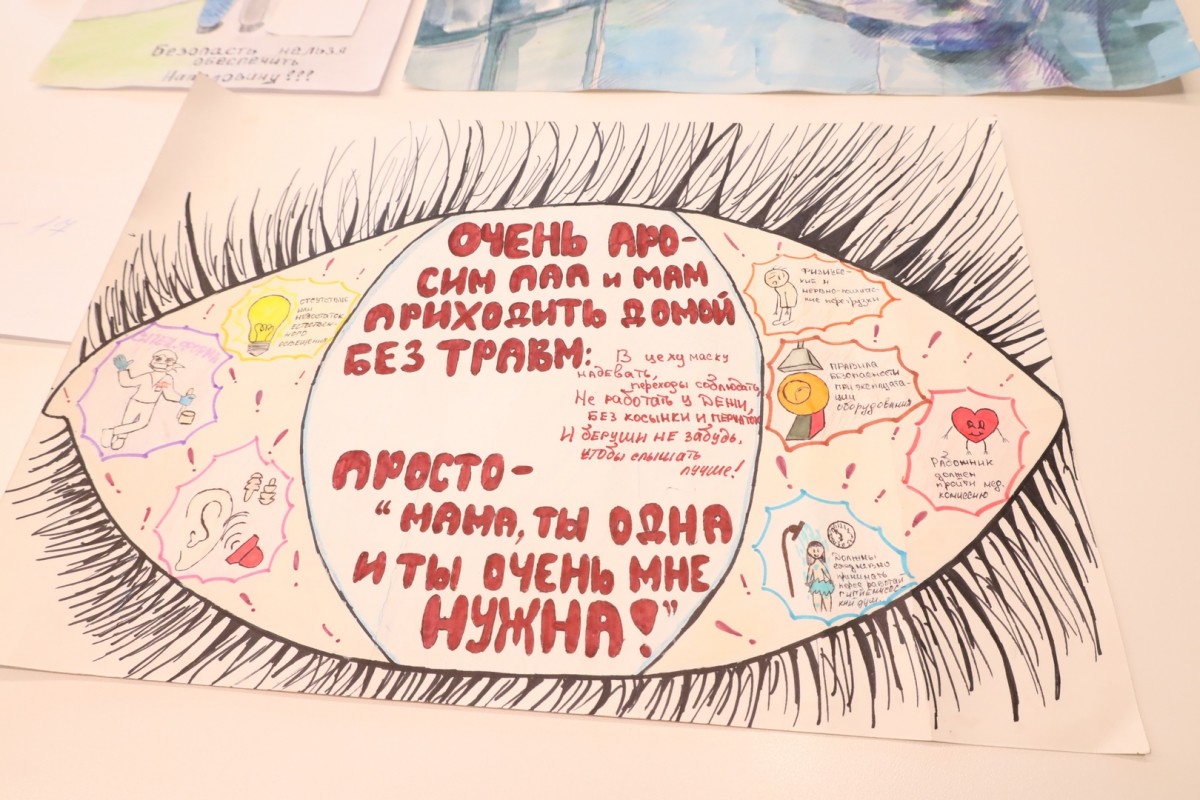 Безопасть нельзя
обеспечить
Наполовину???
ОЧЕНЬ ПРО-
СИМ ПАП и МАМ
ПРИХОДИТЬ ДОМОЙ
БЕЗ ТРАВМ:
В цеху маску
надевать,
переходы соблюдать,
Не работать у
БЕЗ КОСЫНКИ И
И беруши не забудь,
чтобы слышать
лучше!
ПРОСТО-
"МАМА, ТЫ ОДНА
И ТЫ ОЧЕНЬ МНЕ
НУЖНА!"
ОТСУТСТВИЕ
ИЛИ
НЕДОСТАТОК
ЕСТЕСТВЕН-
НОГО
ОСВЕЩЕНИЯ
ФИЗИЧЕС-
КИЕ И
НЕРВНО-ПСИХИЧЕС-
КИЕ ПЕРЕГРУЗКИ
ПРАВИЛА
БЕЗОПАСНОСТИ
ПРИ ЭКСПЛУАТА-
ЦИИ
ОБОРУДОВАНИЯ
РАБОТНИК
ДОЛЖЕН
ПРОЙТИ МЕД.
КОМИССИЮ
Должны
принимать
перед работой
гигиеничес-
кий душ